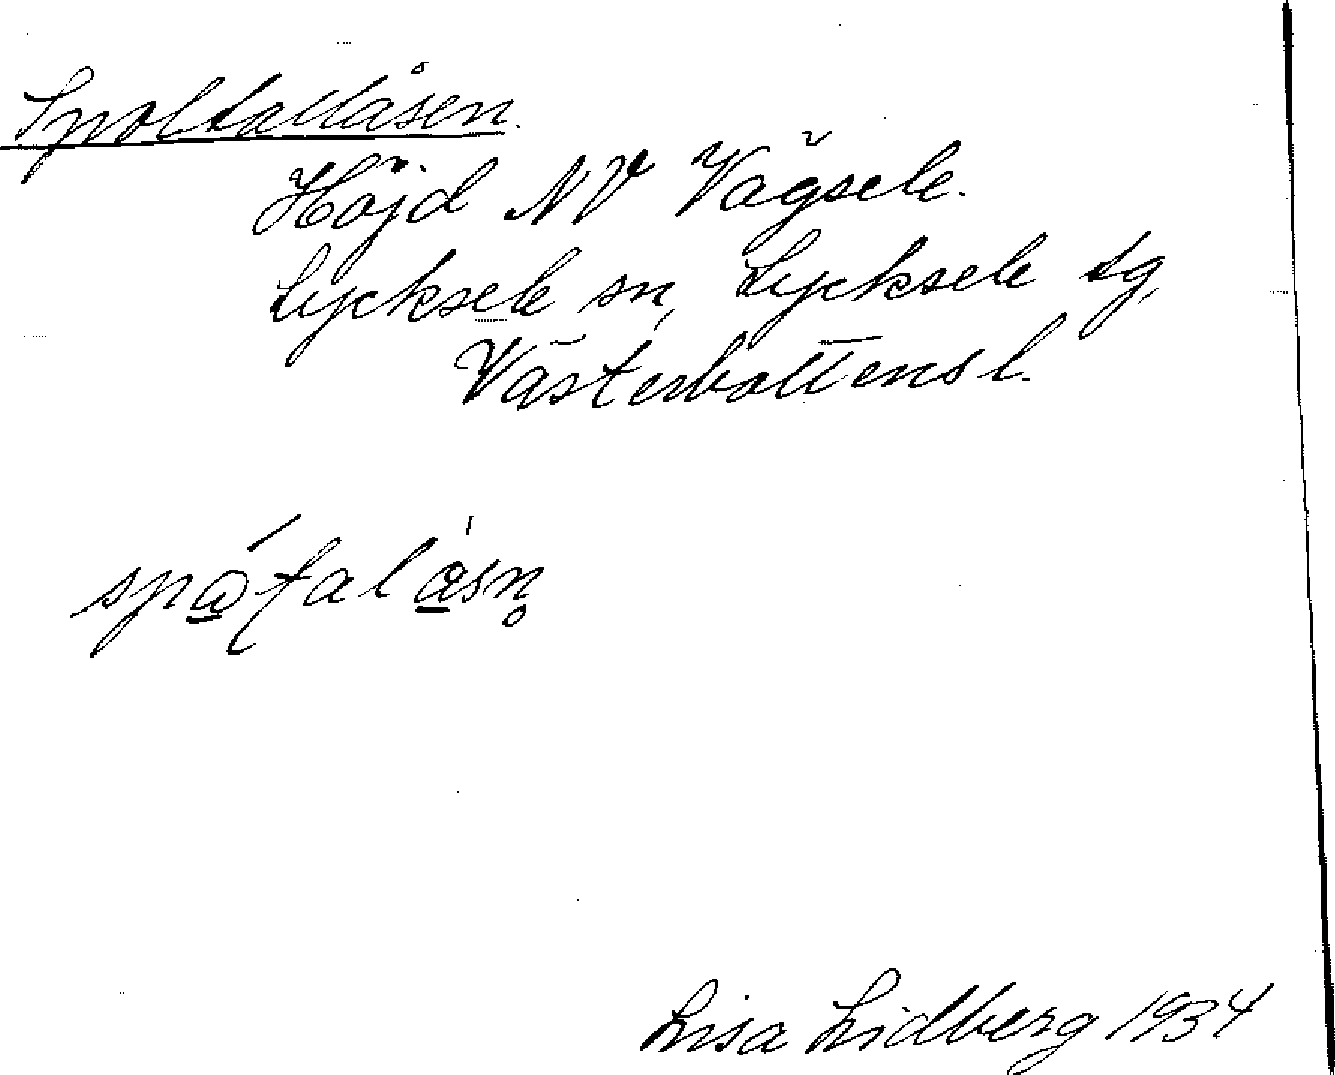 Spoltallåsen.
Höjd NV Vägsele.
Lycksele sn, Lycksele tg,
Västerbottensl.
Lisa Lidberg 1934